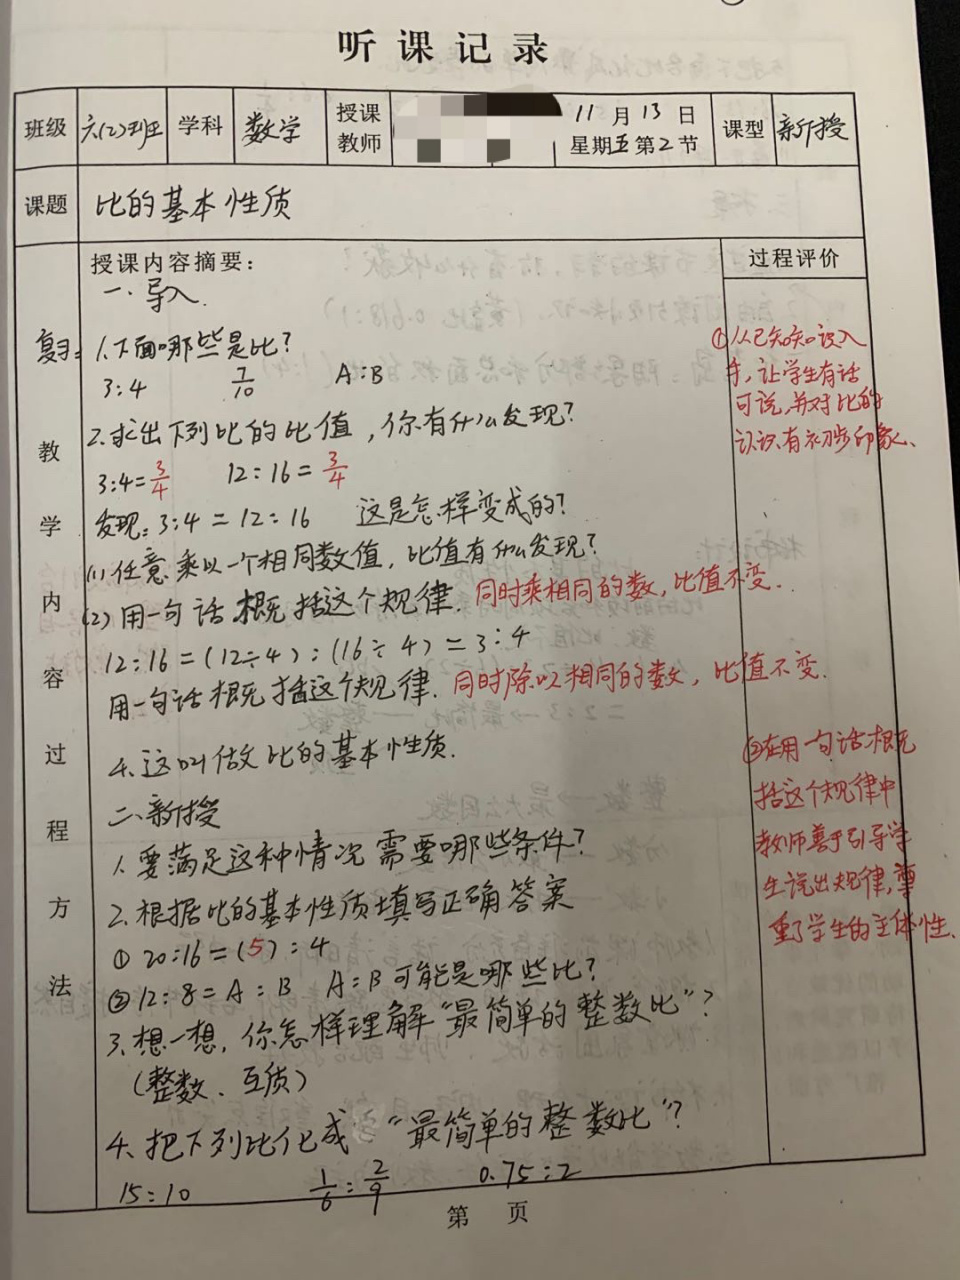 听课记录
班级 六(2)班 学科 数学 授课教师 11月13日 星期五第2节 课型 新授
课题 比的基本性质
教学内容过程方法
授课内容摘要：
过程评价
一、导入
复习：1.下面哪些是比？
3:4 7/10 A:B
2.求出下列比的比值，你有什么发现？
3:4=3/4 12:16=3/4
发现：3:4=12:16 这是怎样变成的？
(1)任意乘以一个相同数值，比值有什么发现？
(2)用一句话概括这个规律.同时乘相同的数，比值不变.
12:16=(12÷4):(16÷4)=3:4
用一句话概括这个规律.同时除以相同的数，比值不变.
4.这叫做比的基本性质.
二、新授
1.要满足这种情况需要哪些条件？
2.根据比的基本性质填写正确答案
①20:16=(5):4
②12:8=A:B A:B可能是哪些比？
3.想一想，你怎样理解“最简单的整数比”？
(整数、互质)
4.把下列比化成“最简单的整数比”？
15:10 1/6:2/9 0.75:2
①从已知知识入
手，让学生有话
可说，并对比的
认识有初步印象、
②在用一句话概
括这个规律中
教师善于引导学
生说出规律，尊
重了学生的主体性.
第 页